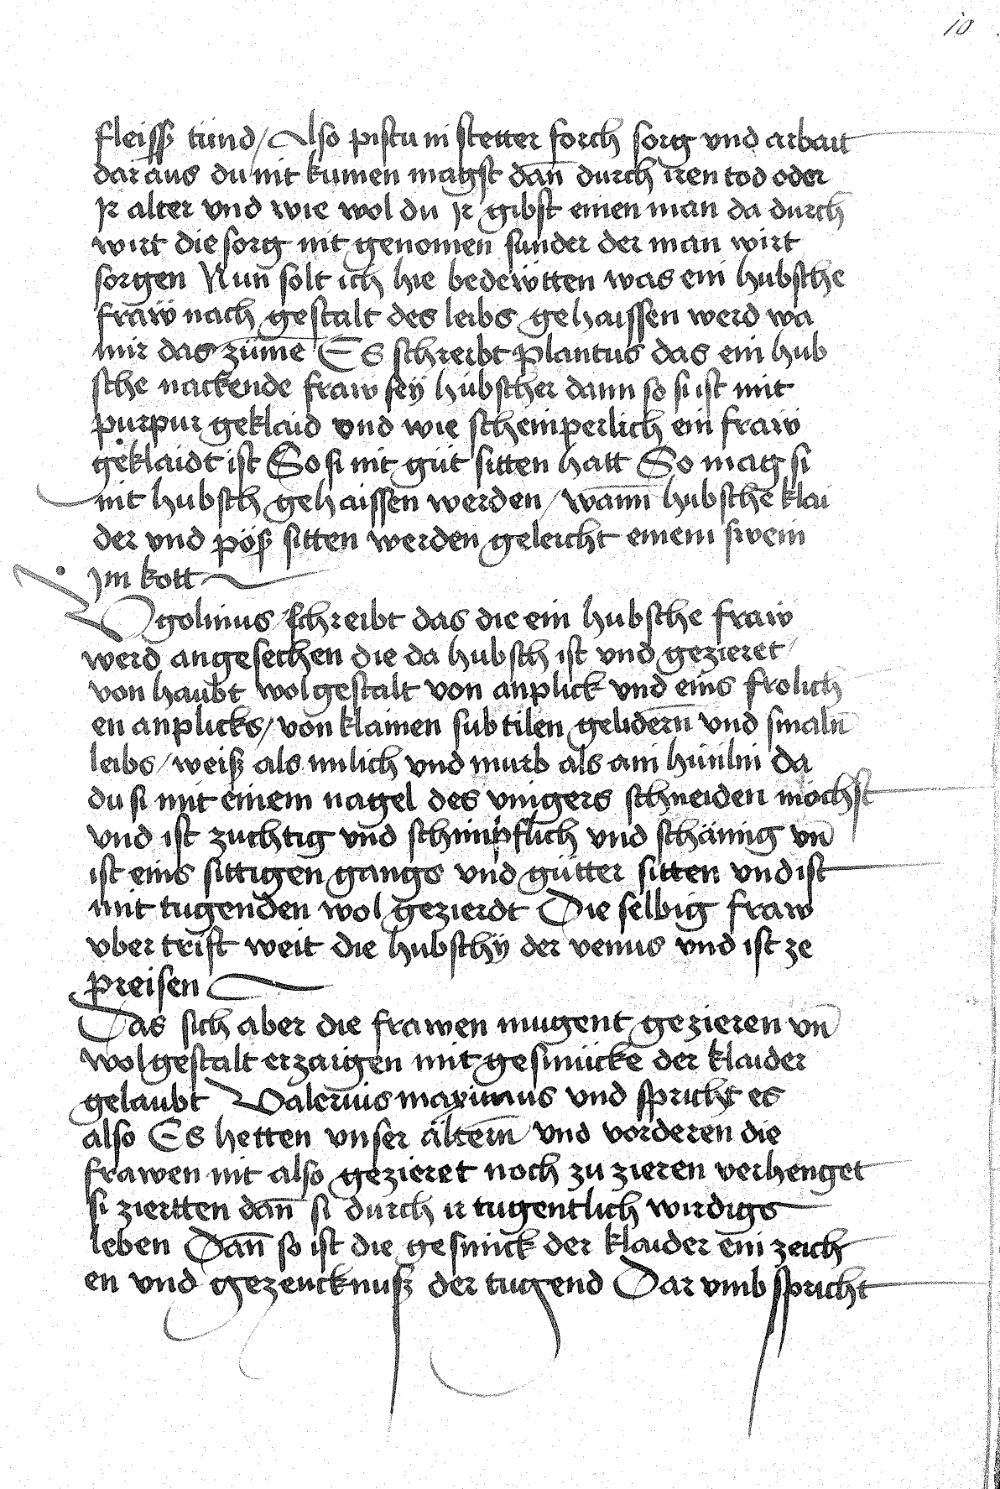 10
fleiss tund / Also pistu in stetter forch sorg vnd arbait
dar aus du nit kumen magst dan̄ durch iren tod oder
Ir alter vnd wie wol du Ir gibst einen man da durch
wirt die sorg nit genomen sunder der man wirt
sorgen Nun̄ solt ich hie bedewtten was ein hubsche
fraw nach gestalt des leibs gehaissen werd wa
mir das züme Es schreibt plantus das ein hub
sche nackende fraw seÿ hübscher dann so si ist mit
purpur geklaid vnd wie scheinperlich ein fraw
geklaidt ist So si nit güt sitten hatt So mag si
nit hubsch gehaissen werden / wann̄ hubsche klai
der vnd pöß sitten werden geleicht einem swein
Im kott
Vgolinus schreibt das die ein hubsche fraw
werd angesechen die da hubsch ist vnd gezieret /
von haubt wolgestalt von anplick vnd eins frolich
en anplicks / von klainen subtilen gelidern̄ vnd smaln̄
leibs / weiß als milich vnd murb als ain hünlin da
du si mit einem nagel des vingers schneiden möchst
vnd ist zuchtig vnd schimpflich vnd schämig vn̄
ist eins sittigen gangs vnd gütter sitten vnd ist
mit tugenden wol gezierdt Die selbig fraw
vber trift weit die hubschÿ der venus vnd ist ze
preisen
Das sich aber die frawen mugent gezieren vn̄
wolgestalt erzaigen mit gesmücke der klaider
gelaubt Valerius maximus vnd spricht es
also Es hetten vnser ältern̄ vnd vorderen die
frawen nit also gezieret noch zu zieren verhenget
si ziertten dan̄ si durch ir tugentlich wirdigs
leben Dan̄ so ist die gesmück der klaider ein zeich
en vnd gezeucknuß der tugend Dar vmb spricht